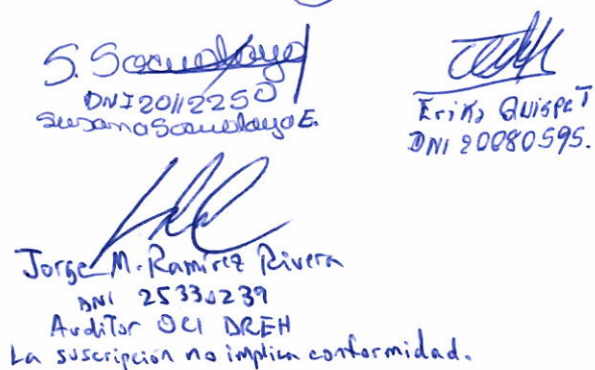 S. Sacualaya
DNI 20112250
Susana Sacualaya E.
Erika Quispe T
DNI 20080595.
Jorge M. Ramirez Rivera
DNI
Auditor OCI DREH
La suscripción no implica conformidad.